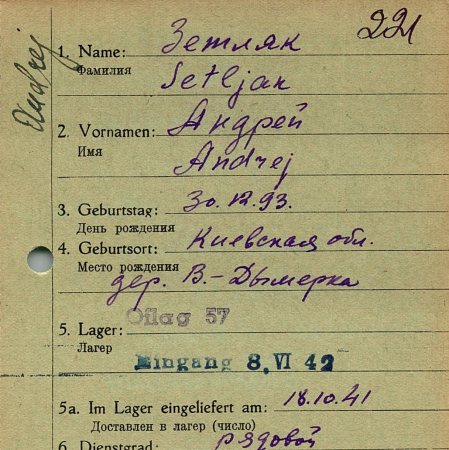 221
Andrej
1. Name: Земляк
Фамилия
Setljak
2. Vornamen: Андрей
Имя
Andrej
3. Geburtstag: 30.12.93.
День рождения
4. Geburtsort: Киевская обл.
Место рождения
дер. В.-Дымерка
Oflag 57
5. Lager:
Лагер
Eingang 8. VI 42
5a. Im Lager eingeliefert am: 18.10.41
Доставлен в лагер (число)
6. Dienstgrad: рядовой